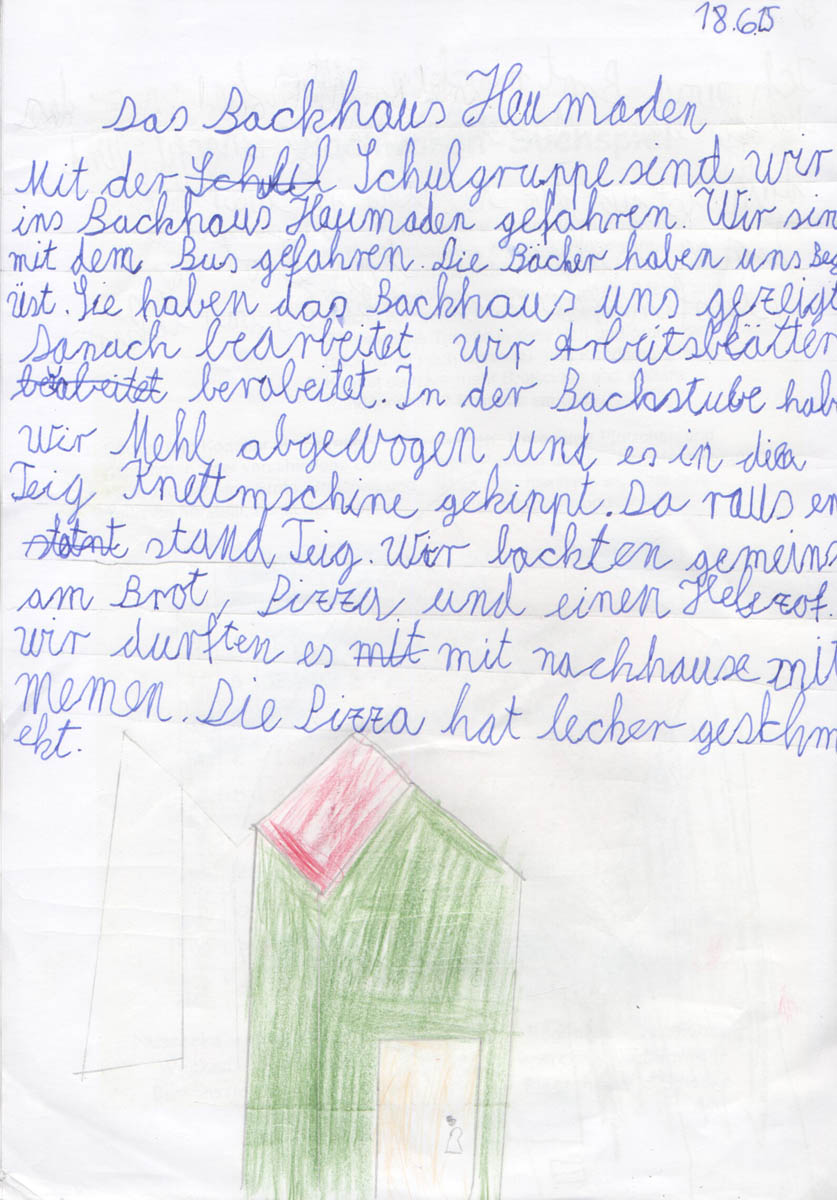 18.6.15
Das Backhaus Heumaden
Mit der Schulgruppe send wir
ins Backhaus Heumaden gefahren. Wir sin
mit dem Bus gefahren. Die Bäcker haben uns Beg
üst. Sie haben das Backhaus uns gezeigt
Danach bearbeitet wir Arbeitsblätter
berabeitet. In der Backstube hab
wir Mehl abgewogen und es in
Teig Knettmschine gekippt. Da raus en
stand Teig. Wir backten gemeins
am Brot, Pizza und einen Hefezof.
wir durften es mit mit nachhause mit
memen. Die Pizza hat lecker geschm
ekt.